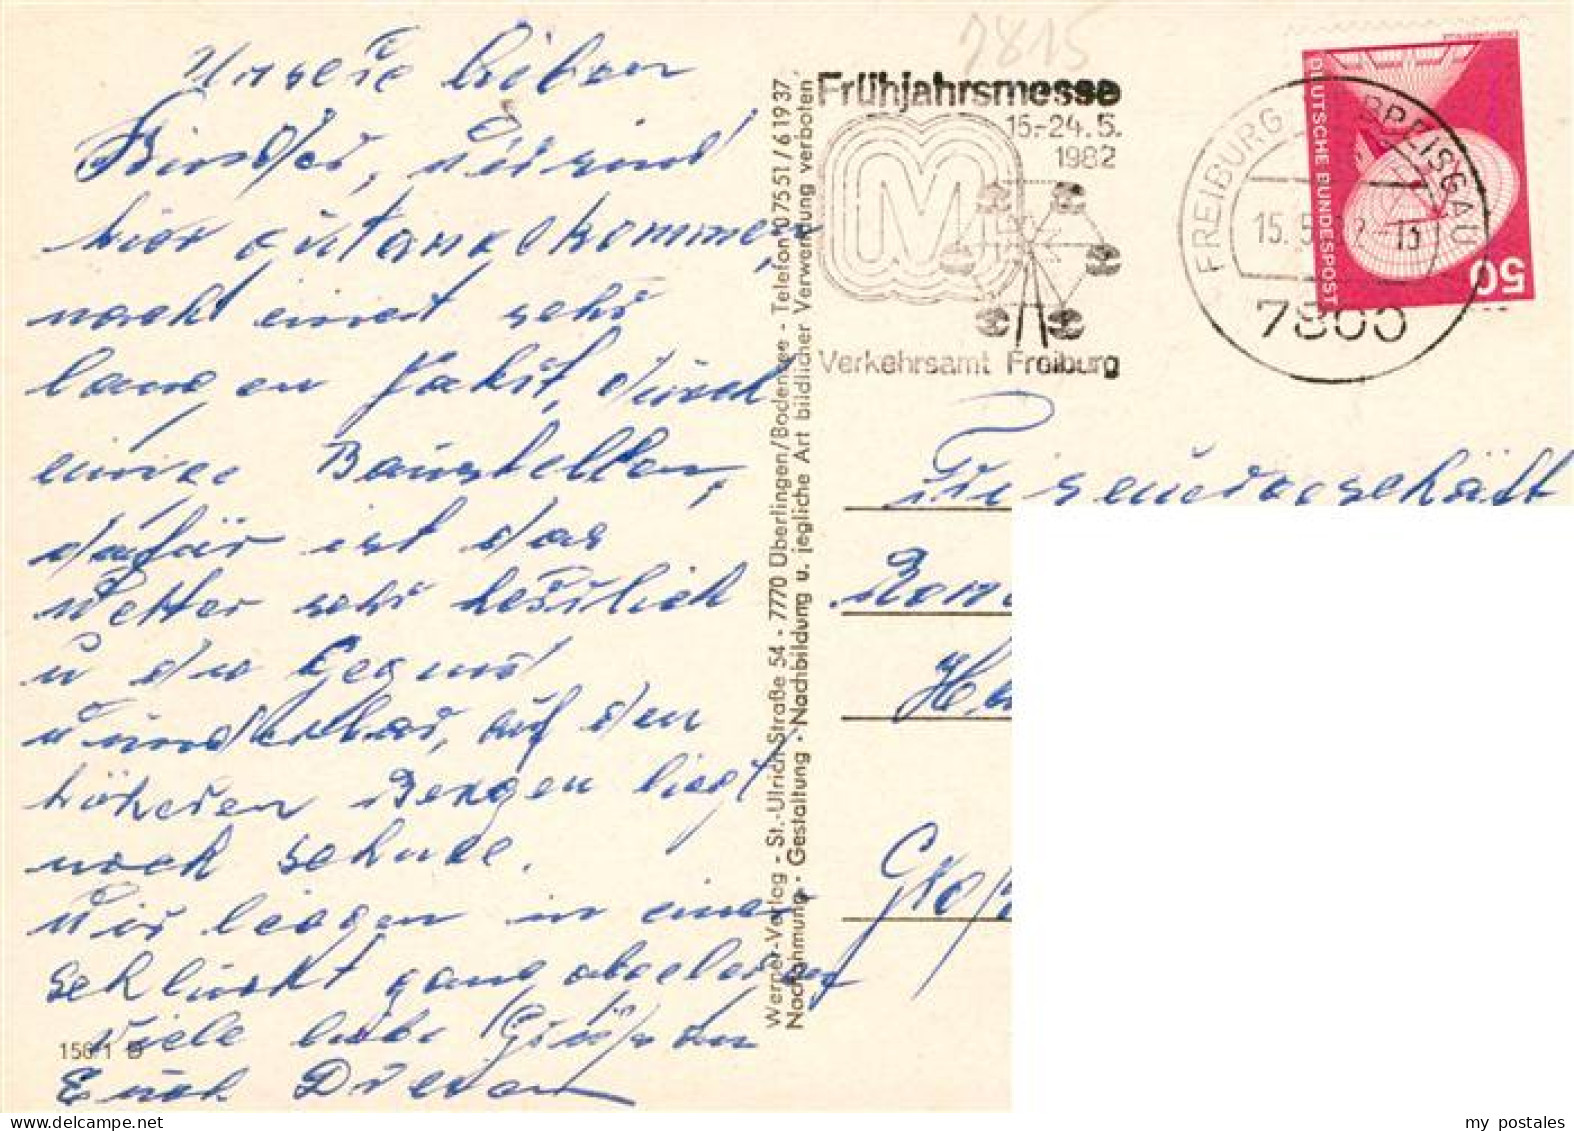 Unsere lieben
Kinder, wir sind
hier gut angekommen,
nach einer sehr
langen Fahrt, durch
einige Baustellen,
dafür ist das
Wetter sehr herrlich
u die Gegend
wunderbar, auf den
höheren Bergen liegt
noch Schnee.
Wir liegen in einer
Schlucht ganz abgelegen
Viele liebe Grüße von
Euch
156/1 B
Werner-Verlag - St.-Ulrich-Straße 54 - 7770 Überlingen/Bodensee - Telefon 07551/61937
Nachahmung · Gestaltung · Nachbildung u. jegliche Art bildlicher Verwendung verboten
7815
Frühjahrsmesse
15.-24.5.
1982
M
Verkehrsamt Freiburg
FREIBURG IM BREISGAU
15.5.82-13
7800
DEUTSCHE BUNDESPOST
50
Friseurgeschäft
my postales